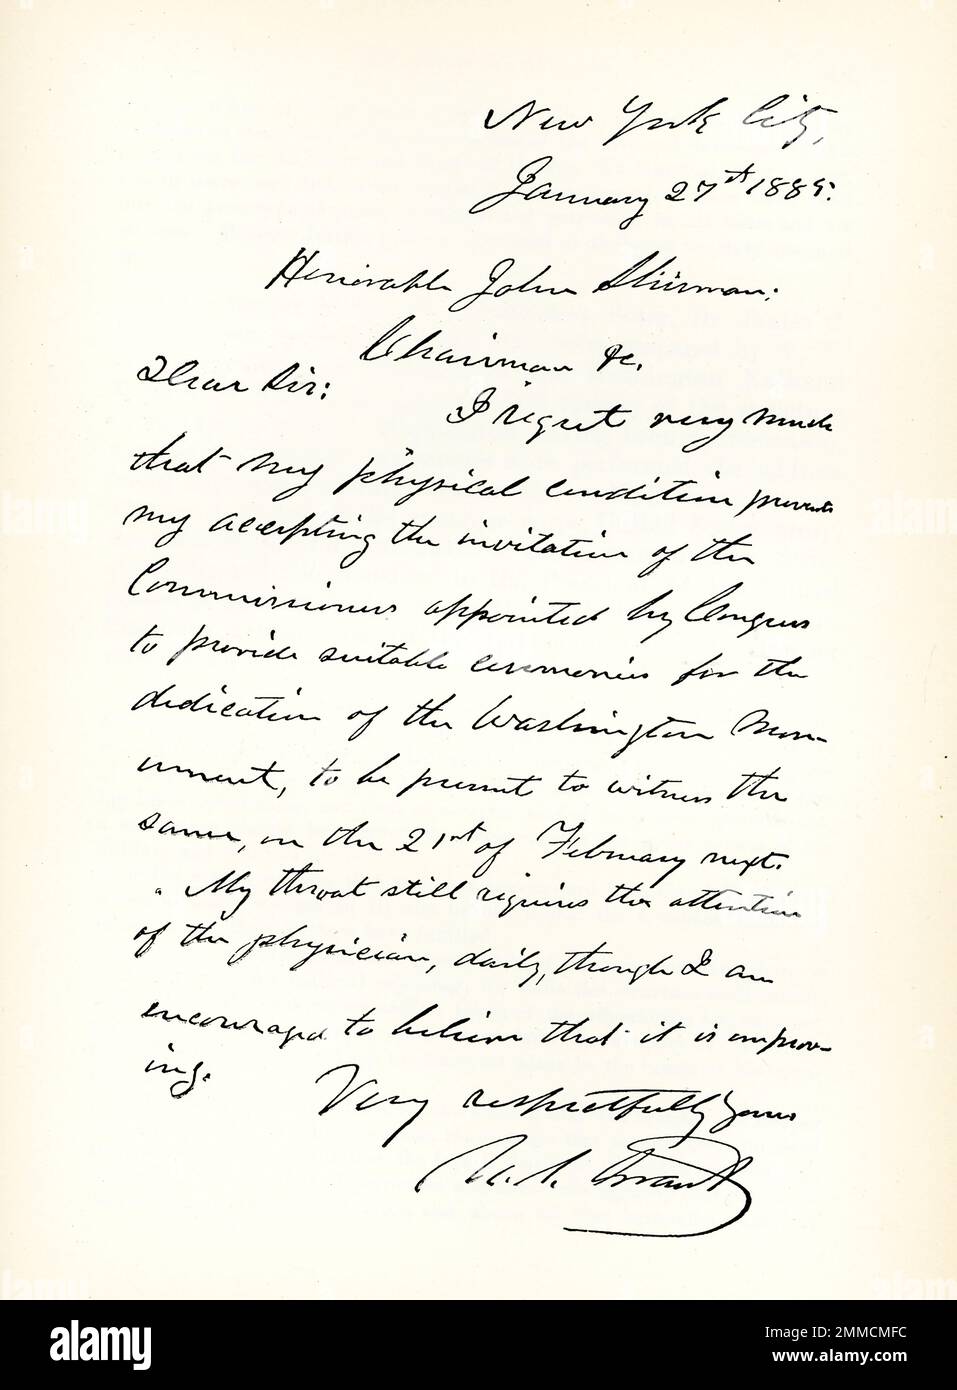 New York City,
January 27th 1885.
Honorable John Sherman:
Chairman &c.
Dear Sir:
I regret very much
that my physical condition prevents
my accepting the invitation of the
Commissioners appointed by Congress
to provide suitable ceremonies for the
dedication of the Washington Mon-
ument, to be present to witness the
same, on the 21st of February next.
My throat still requires the attention
of the physician, daily, though I am
encouraged to believe that it is improv-
ing.
Very respectfully yours
U. S. Grant
alamy
Image ID: 2MMCMFC
www.alamy.com